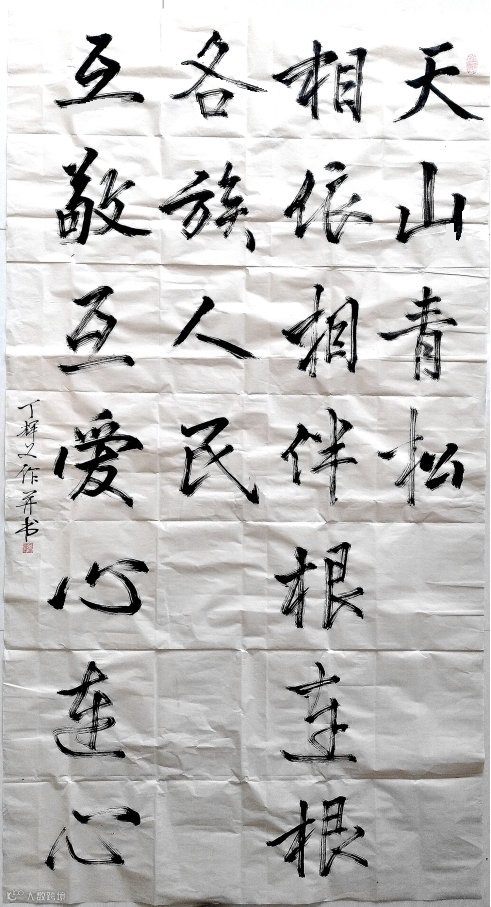 天山青松
相依相伴根连根
各族人民
互敬互爱心连心
丁辉义作并书
大数跨境